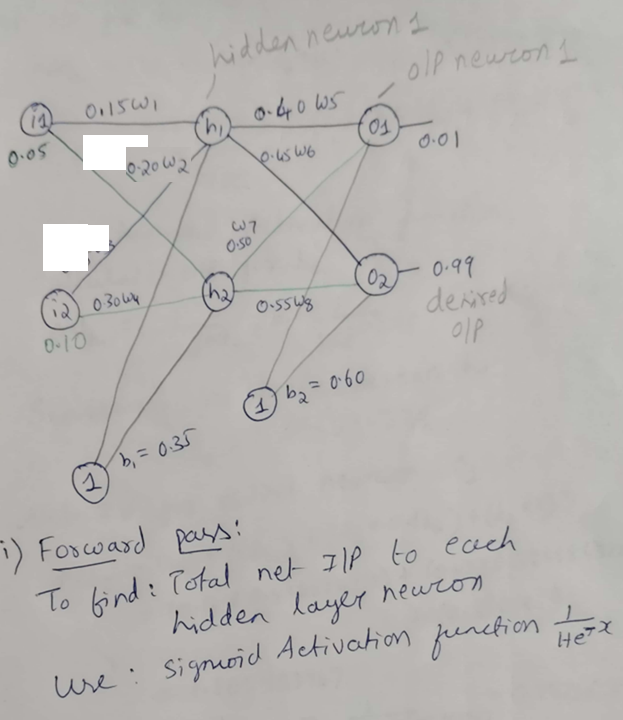 hidden neuron 1
O/P neuron 1
i1
0.15w1
h1
0.40 w5
O1
0.01
0.05
0.20w2
0.45w6
w7
0.50
i2
0.30w4
h2
0.55w8
O2
0.99
desired
O/P
0.10
1
b2 = 0.60
1
b1 = 0.35
i) Forward pass:
To find: Total net I/P to each
hidden layer neuron
Use: Sigmoid Activation function 1/1+e^-x